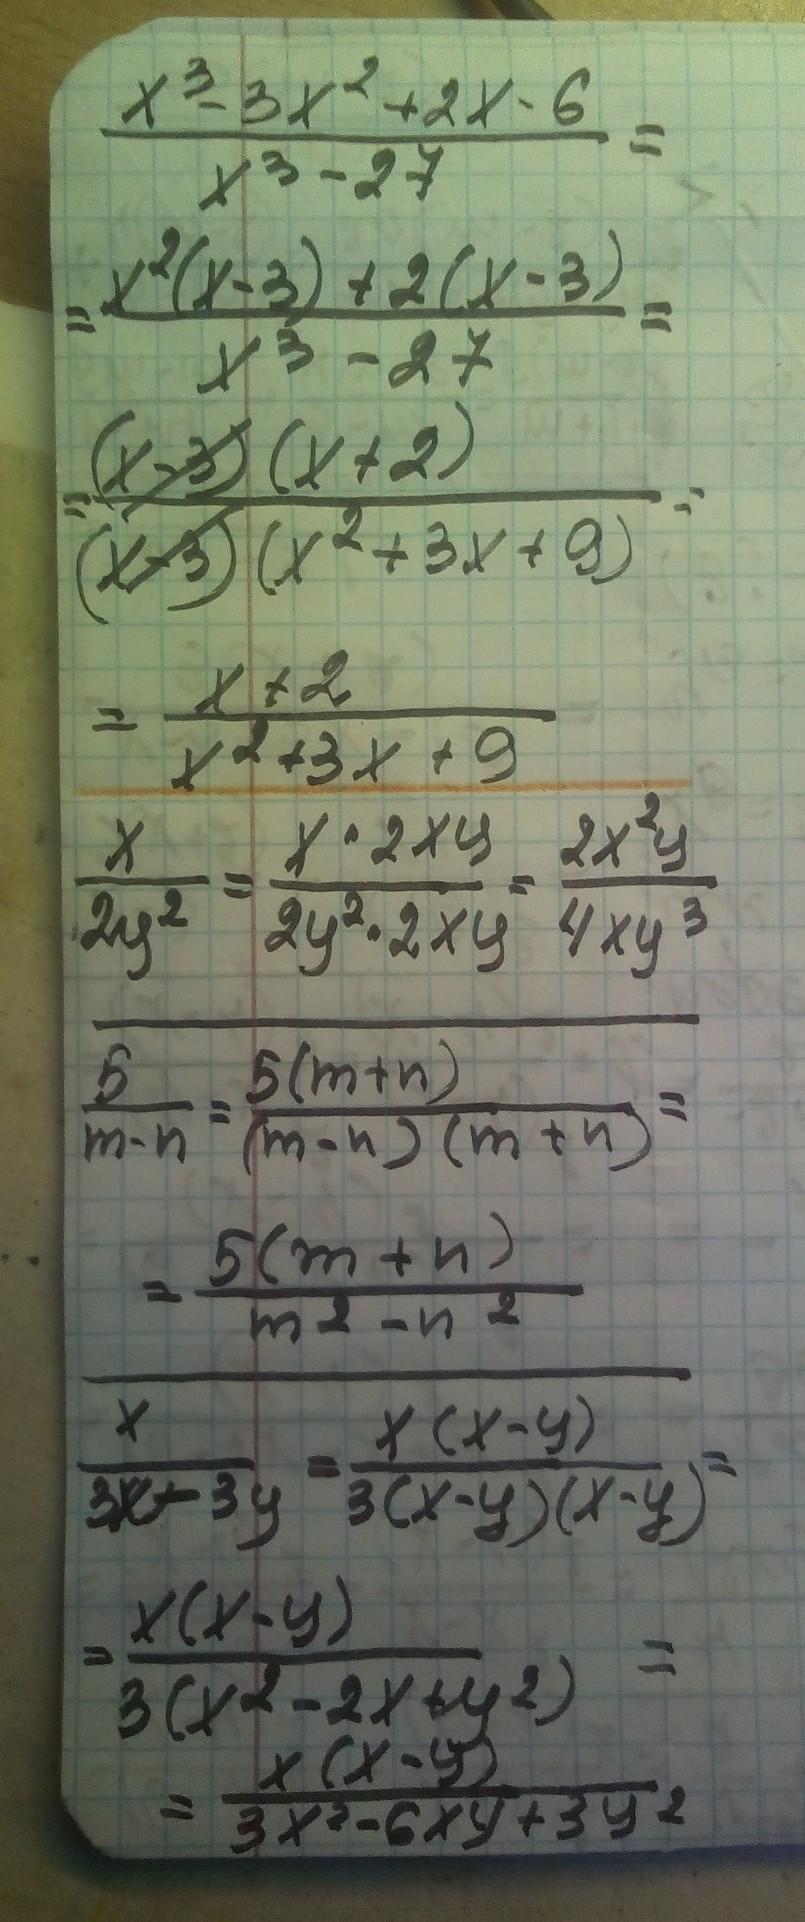 x³-3x²+2x-6 =
x³-27
= x²(x-3)+2(x-3) =
x³-27
= (x-3)(x+2) =
(x-3)(x²+3x+9)
= x+2
x²+3x+9
x = x·2xy = 2x²y
2y² 2y²·2xy 4xy³
5 = 5(m+n) =
m-n (m-n)(m+n)
= 5(m+n)
m²-n²
x = x(x-y) =
3x-3y 3(x-y)(x-y)
= x(x-y) =
3(x²-2x+y²)
= x(x-y)
3x²-6xy+3y²